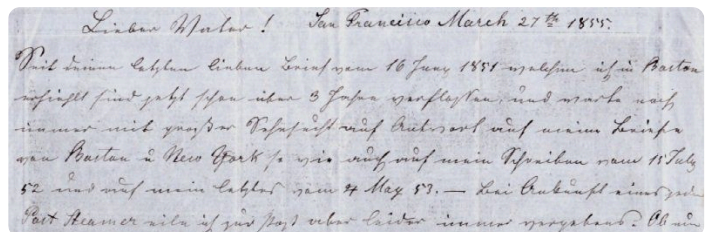 Lieber Vater! San Francisico March 27th 1855.
Seit deinen letzten lieben Brief vom 16 Juny 1851 welchen ich in Boston
erhiehlt sind jetzt schon über 3 Jahre verflossen, und warte noch
immer mit großer Sehnsucht auf Antwort auf meine Briefe
von Boston u New York so wie auch auf mein Schreiben vom 15 July
52 und auf mein letztes vom 4 May 53. — bei Ankunft eines jeden
Post Steamer eile ich zur Post aber leider immer vergebens. Ob